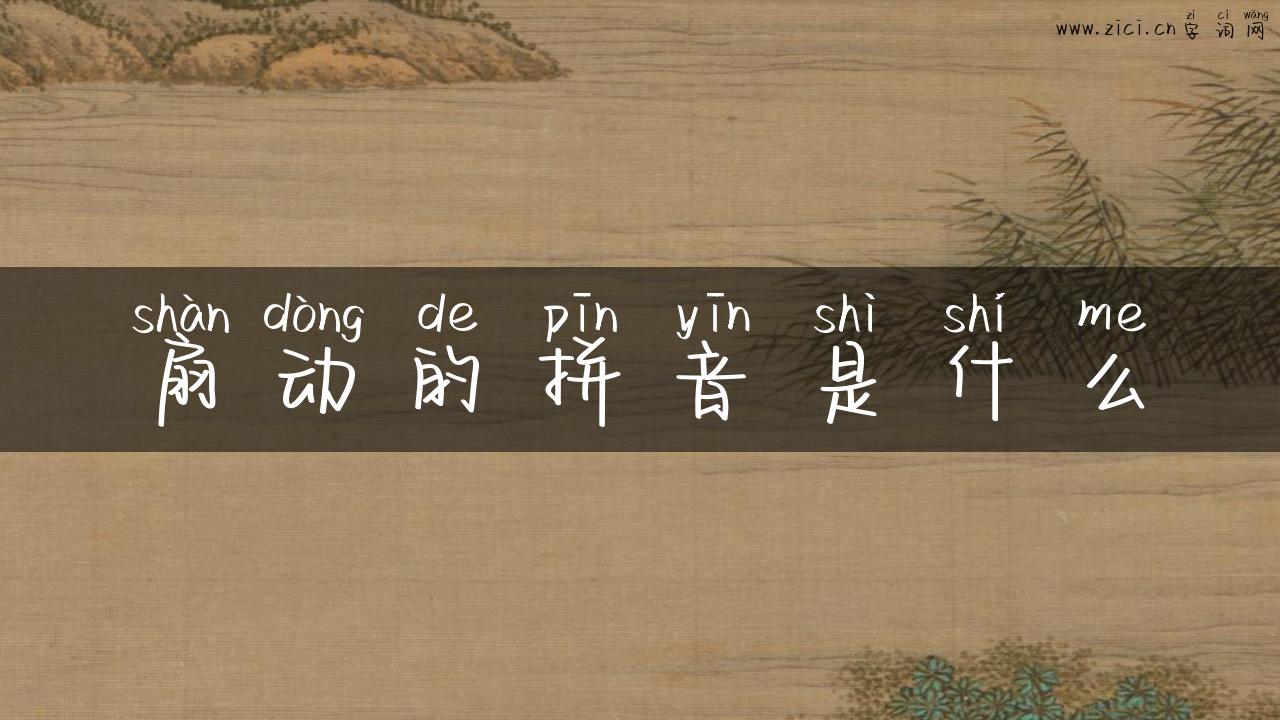 zì cí wǎng
www.zici.cn 字 词 网
shàn dòng de pīn yīn shì shí me
扇 动 的 拼 音 是 什 么